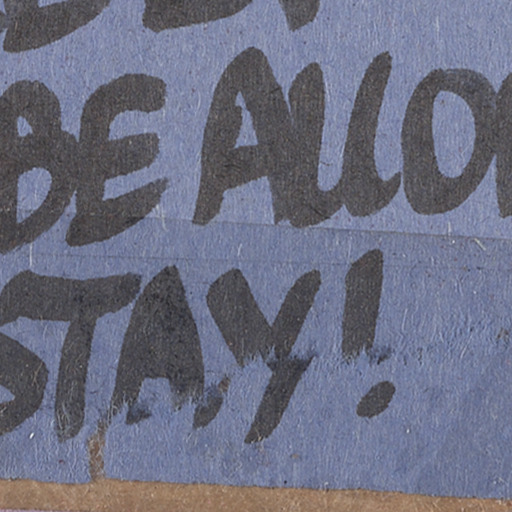 BE ALLO
STAY!